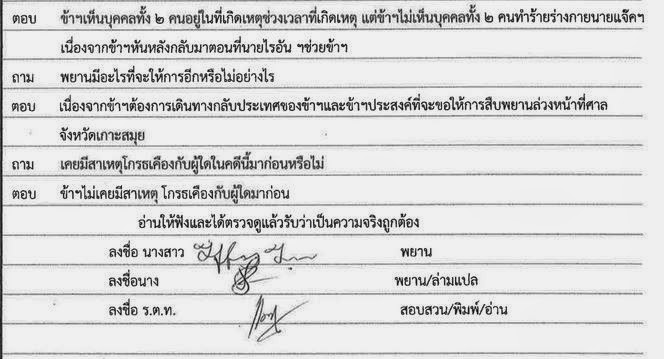 ตอบ ข้าฯเห็นบุคคลทั้ง ๒ คนอยู่ในที่เกิดเหตุช่วงเวลาที่เกิดเหตุ แต่ข้าฯไม่เห็นบุคคลทั้ง ๒ คนทำร้ายร่างกายนายแจ๊คฯ
เนื่องจากข้าฯหันหลังกลับมาตอนที่นายไรอัน ฯช่วยข้าฯ
ถาม พยานมีอะไรที่จะให้การอีกหรือไม่อย่างไร
ตอบ เนื่องจากข้าฯต้องการเดินทางกลับประเทศของข้าฯและข้าฯประสงค์ที่จะขอให้การสืบพยานล่วงหน้าที่ศาล
จังหวัดเกาะสมุย
ถาม เคยมีสาเหตุโกรธเคืองกับผู้ใดในคดีนี้มาก่อนหรือไม่
ตอบ ข้าฯไม่เคยมีสาเหตุ โกรธเคืองกับผู้ใดมาก่อน
อ่านให้ฟังและได้ตรวจดูแล้วรับว่าเป็นความจริงถูกต้อง
ลงชื่อ นางสาว พยาน
ลงชื่อนาง พยาน/ล่ามแปล
ลงชื่อ ร.ต.ท. สอบสวน/พิมพ์/อ่าน